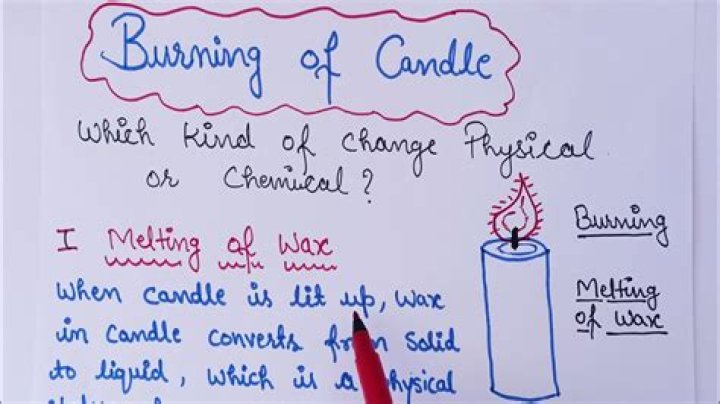 Burning of Candle
Which Kind of change Physical
or Chemical?
I Melting of Wax
When candle is lit up, Wax
in candle converts from Solid
to liquid, which is a physical
Burning
Melting
of Wax